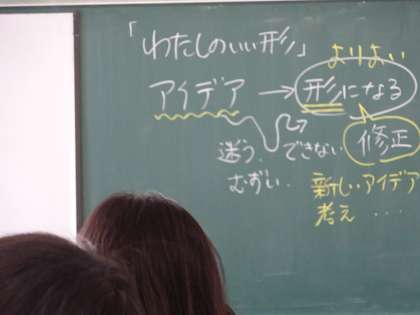 「わたしのいい形」
よりよい
アイデア → 形になる
迷う、できない
むずい.
修正
新しいアイデア
考え ....